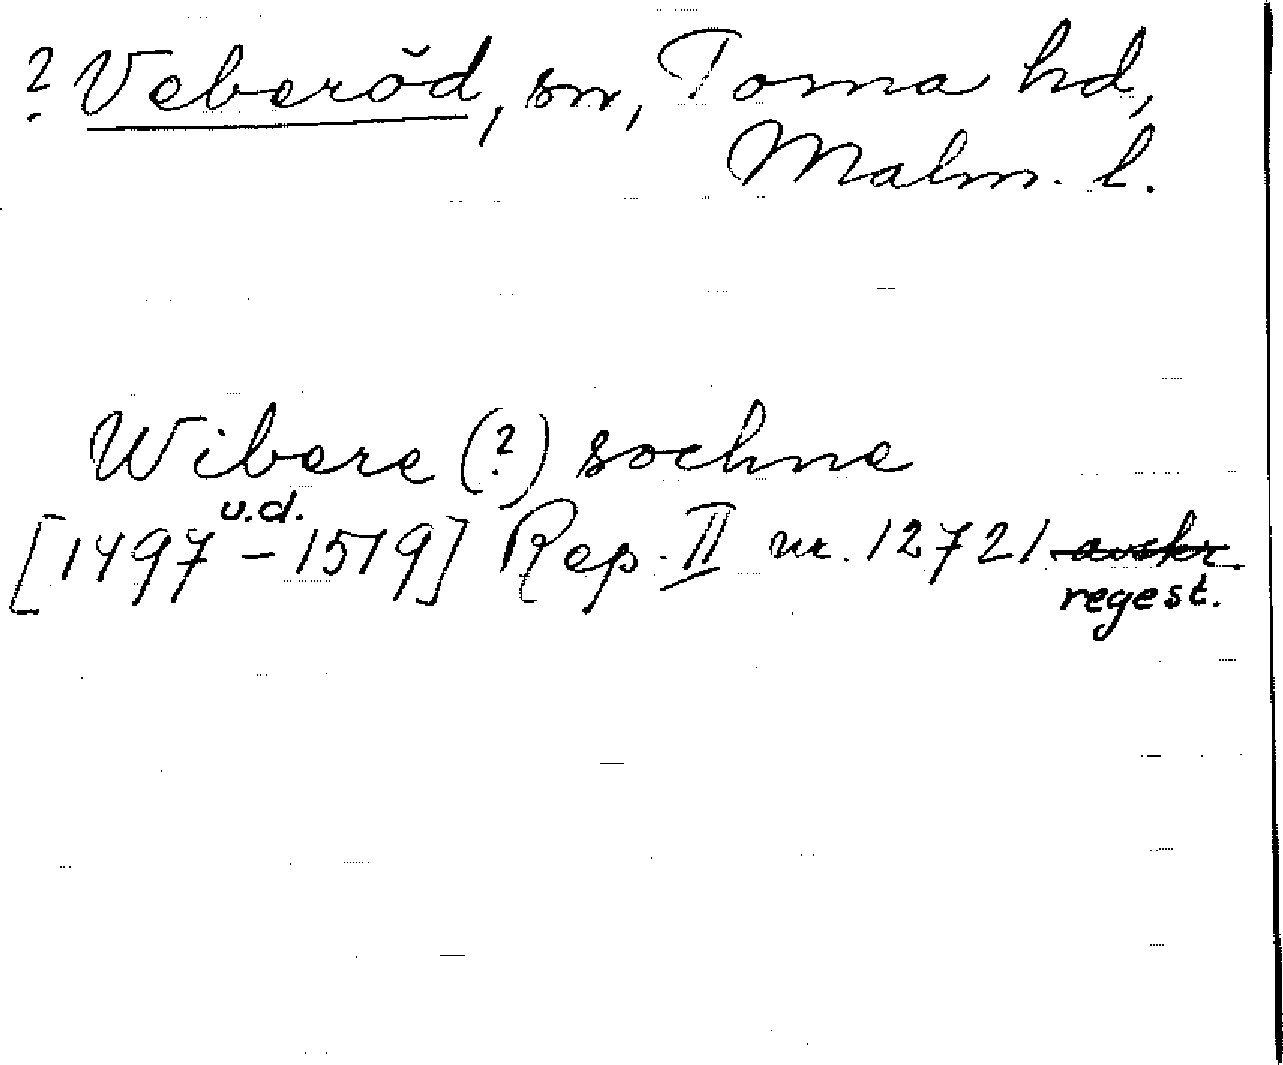 ? Veberöd, sn, Torna hd,
Malm. l.
Wibere (?) sochne
u.d.
[1497-1519] Rep. II nr. 12721 avskr.
regest.